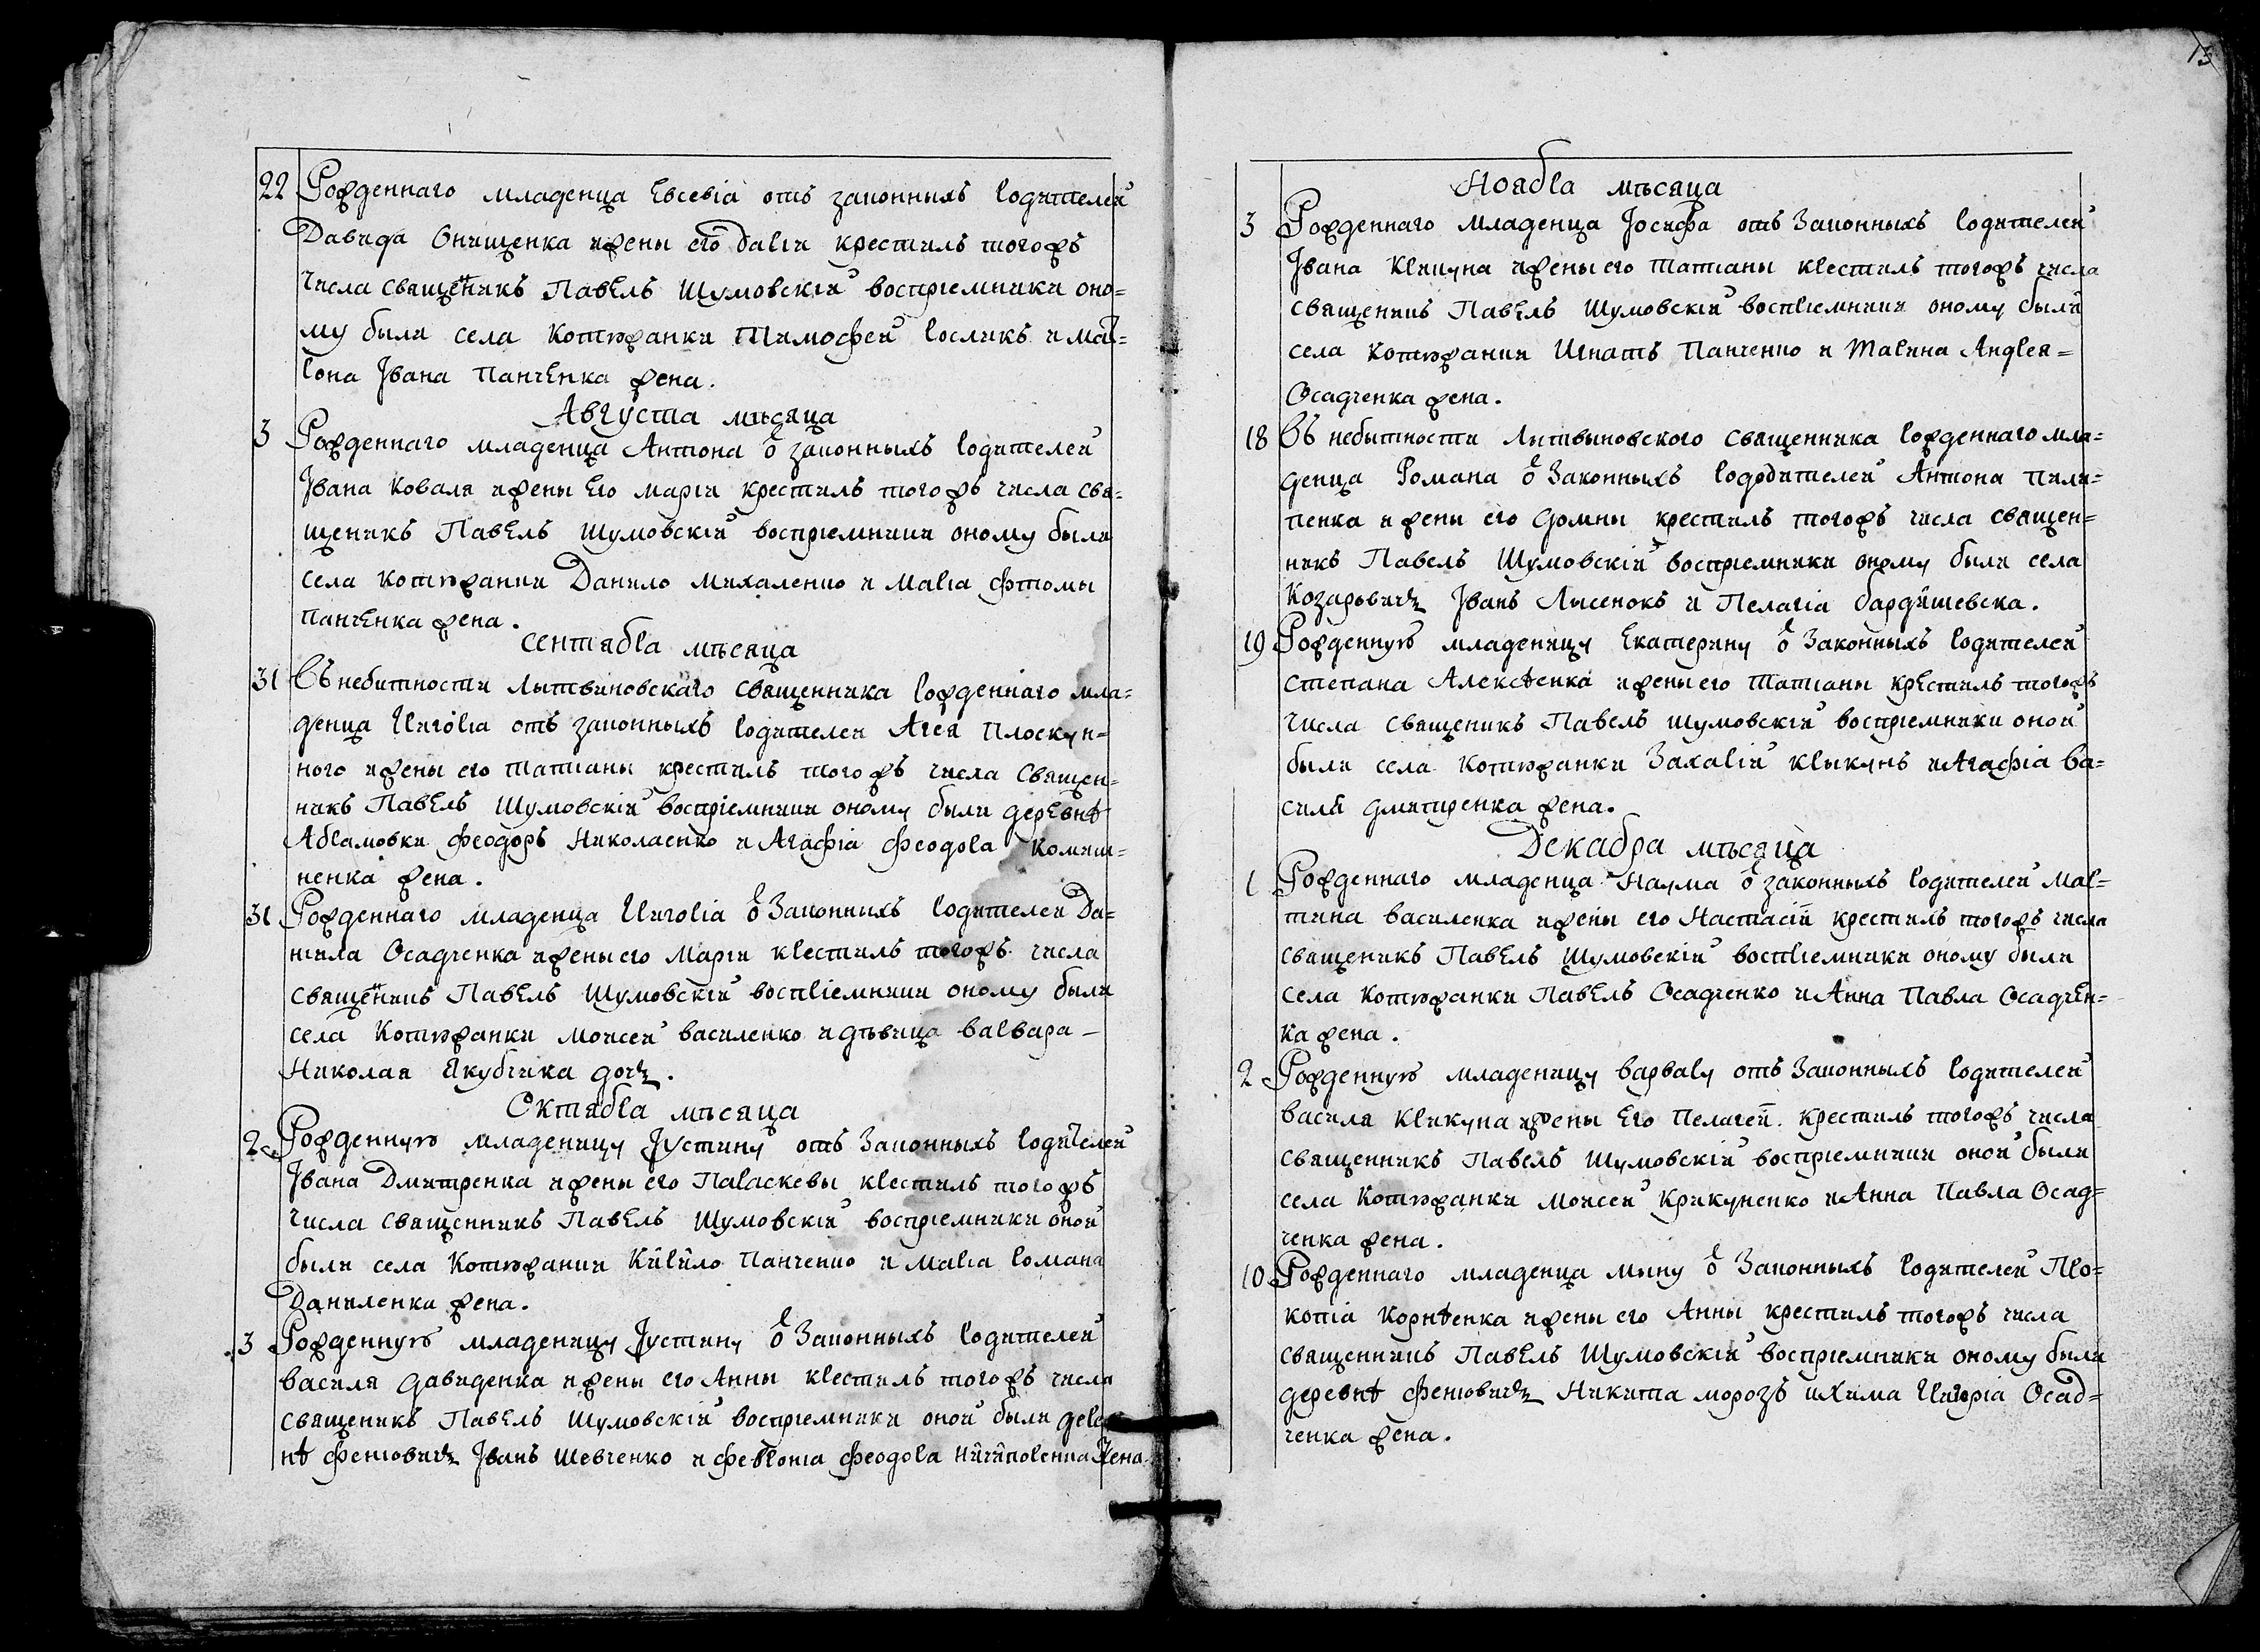 22 Рожденнаго младенца Евсевіа отъ законныхъ родителей
Давида Онищенка ижены его Даріи крестилъ тогожъ
числа священикъ Павелъ Шумовскій воспріемники оно=
му были села Котюжанки Тимофей росликъ и Мат=
рона Івана Панченка жена.
Августа мѣсяца
3 Рожденнаго младенца Антона ѿ законныхъ родителей
Івана Коваля ижены его Маріи крестилъ тогожъ числа свя=
щеникъ Павелъ Шумовскій воспріемники оному были
села Котюжанки Данило Михаленко и Маріа Фтомы
Панченка жена.
Сентября мѣсяца
31 Въ небитности Лытвиновского священника рожденнаго мла=
денца Григоріа отъ законныхъ родителей Агея Плоскун=
ного ижены его Татіаны крестилъ тогожъ числа священ=
никъ Павелъ Шумовскій воспріемники оному были деревнѣ
Абрамовки Феодоръ Николаенко и Агафіа Феодора Комиш=
ненка жена.
31 Рожденнаго младенца Григоріа ѿ законныхъ родителей Да=
нила Осадченка ижены его Маріи крестилъ тогожъ числа
священикъ Павелъ Шумовскій воспріемники оному были
села Котюжанки Моисей Василенко и дѣвица Варвара
Николая Якубчика дочь.
Октября мѣсяца
2 Рожденную младеницу Іустину отъ законныхъ родителей
Івана Дмитренка ижены его Параскевы крестилъ тогожъ
числа священникъ Павелъ Шумовскій воспріемники оной
были села Котюжанки Кирило Панченко и Маріа Романа
Даниленка жена.
3 Рожденную младеницу Іустину ѿ законныхъ родителей
Василя Давиденка ижены его Анны крестилъ тогожъ числа
священикъ Павелъ Шумовскій воспріемники оной были дерев
нѣ Феневичъ Іванъ Шевченко и Феѵроніа Феодора Ничипоренка жена.
13
Ноября мѣсяца
3 Рожденнаго младенца Іосифа отъ законныхъ родителей
Івана Крикуна ижены его Татіаны крестилъ тогожъ числа
священикъ Павелъ Шумовскій воспріемники оному были
села Котюжанки Игнатъ Панченко и Марина Андрея=
Осадченка жена.
18 Въ небытности Лытвыновского священника рожденнаго мла=
денца Романа ѿ законныхъ рododителей Антона Пили=
пенка ижены его Домны крестилъ тогожъ числа священ=
никъ Павелъ Шумовскій воспріемники оному были села
Козаровичъ Іванъ Лысенокъ и Пелагіа Бардишевска.
19 Рожденную младеницу Екатерину ѿ законныхъ родителей
Степана Алексѣенка ижены его Татіаны крестилъ тогожъ
числа священикъ Павелъ Шумовскій воспріемники оной
были села Котюжанки Захарій Крыкунъ и Агафіа Ва=
силя Дмитренка жена.
Декабра мѣсяца
1 Рожденнаго младенца Наума ѿ законныхъ родителей Мар=
тина Василенка ижены его Настасіи крестилъ тогожъ числа
священикъ Павелъ Шумовскій воспріемники оному были
села Котюжанки Павелъ Осадченко и Анна Павла Осадчен=
ка жена.
2 Рожденную младеницу Варвару отъ законныхъ родителей
Василя Крикуна ижены его Пелагеи крестилъ тогожъ числа
священникъ Павелъ Шумовскій воспріемники оной были
села Котюжанки Моисей Крикуненко и Анна Павла Осад=
ченка жена.
10 Рожденнаго младенца Мину ѿ законныхъ родителей Про=
копіа Корнѣенка ижены его Анны крестилъ тогожъ числа
священникъ Павелъ Шумовскій воспріемники оному были
деревнѣ Феневичъ Никита Морозъ и Хима Григоріа Осад=
ченка жена.